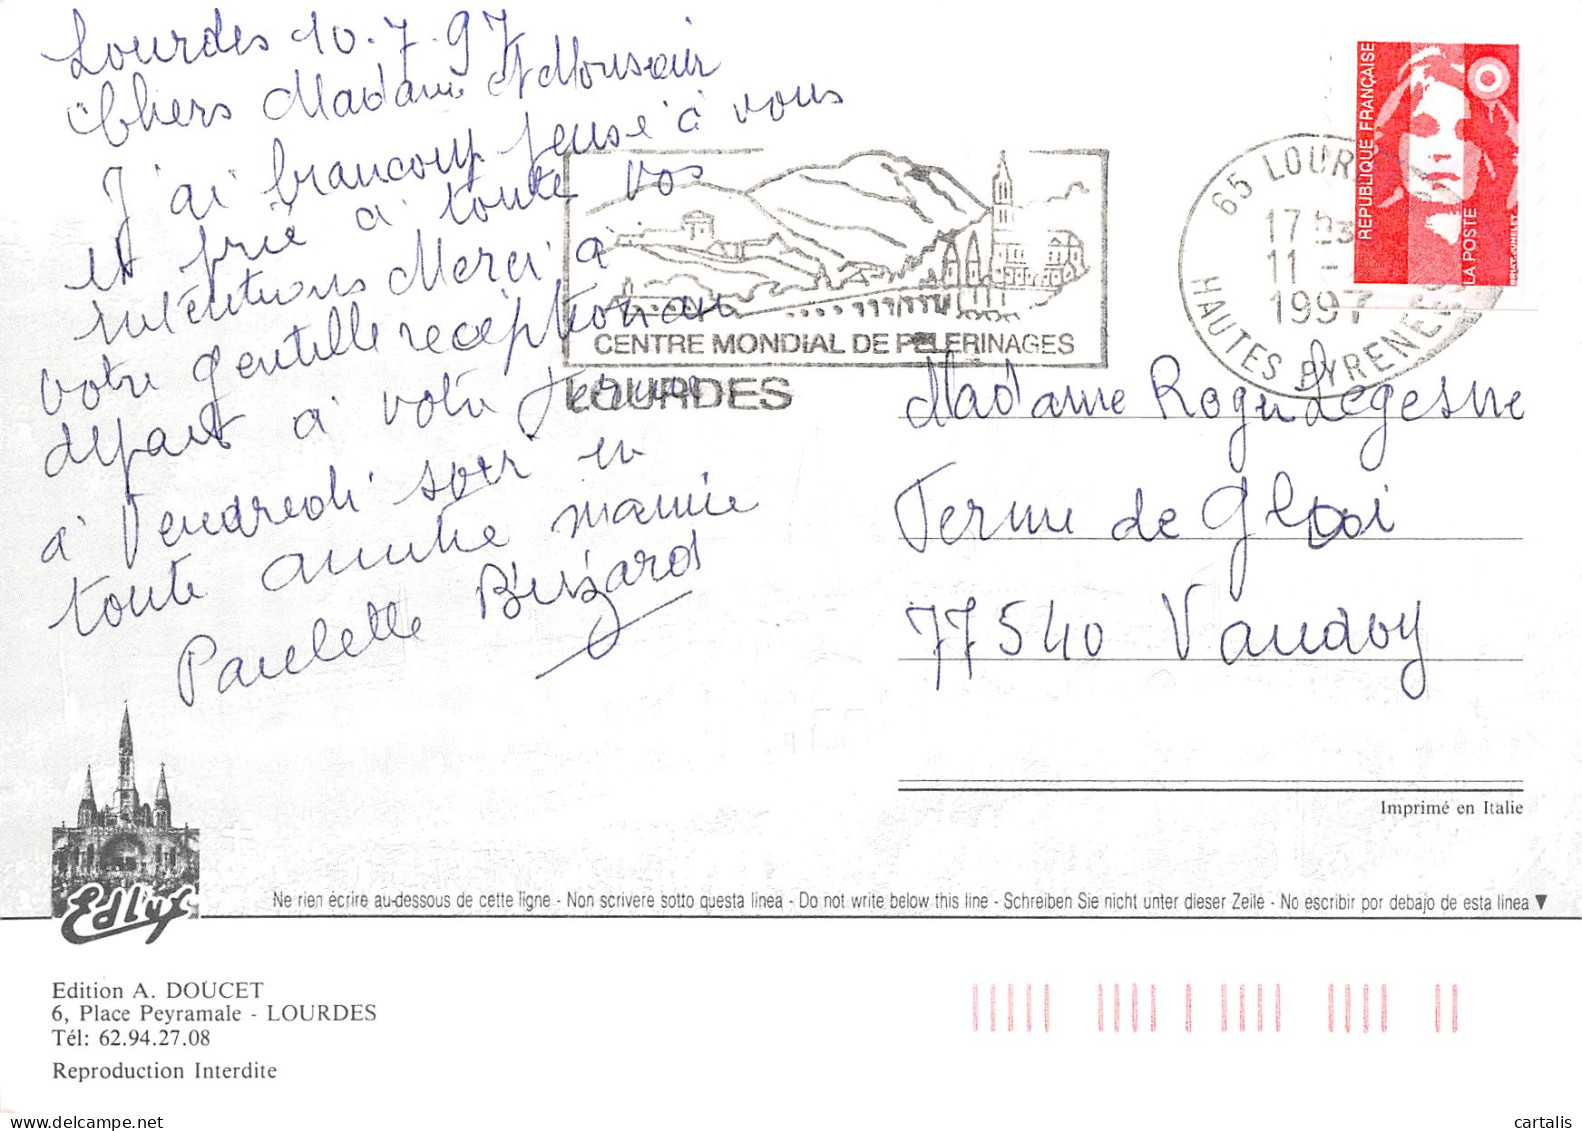 Lourdes 10.7.97
Chers Madame et Monsieur
J'ai beaucoup pensé à vous
et prié à toute vos
intentions Merci à
votre gentille reception au
départ à votre ferme
à Vendredi soir en
toute amitié mamie
Paulette Buzard
CENTRE MONDIAL DE PELERINAGES
LOURDES
65 LOURDES
17 H
11 -
1997
HAUTES PYRENEES
REPUBLIQUE FRANÇAISE
LA POSTE
BRIAT-JUMELET
Madame Roger Legesne
Ferme de
77540 Vaudoy
Imprimé en Italie
Edlux
Ne rien écrire au-dessous de cette ligne - Non scrivere sotto questa linea - Do not write below this line - Schreiben Sie nicht unter dieser Zeile - No escribir por debajo de esta linea ▼
Edition A. DOUCET
6, Place Peyramale - LOURDES
Tél: 62.94.27.08
Reproduction Interdite
cartalis
delcampe.net